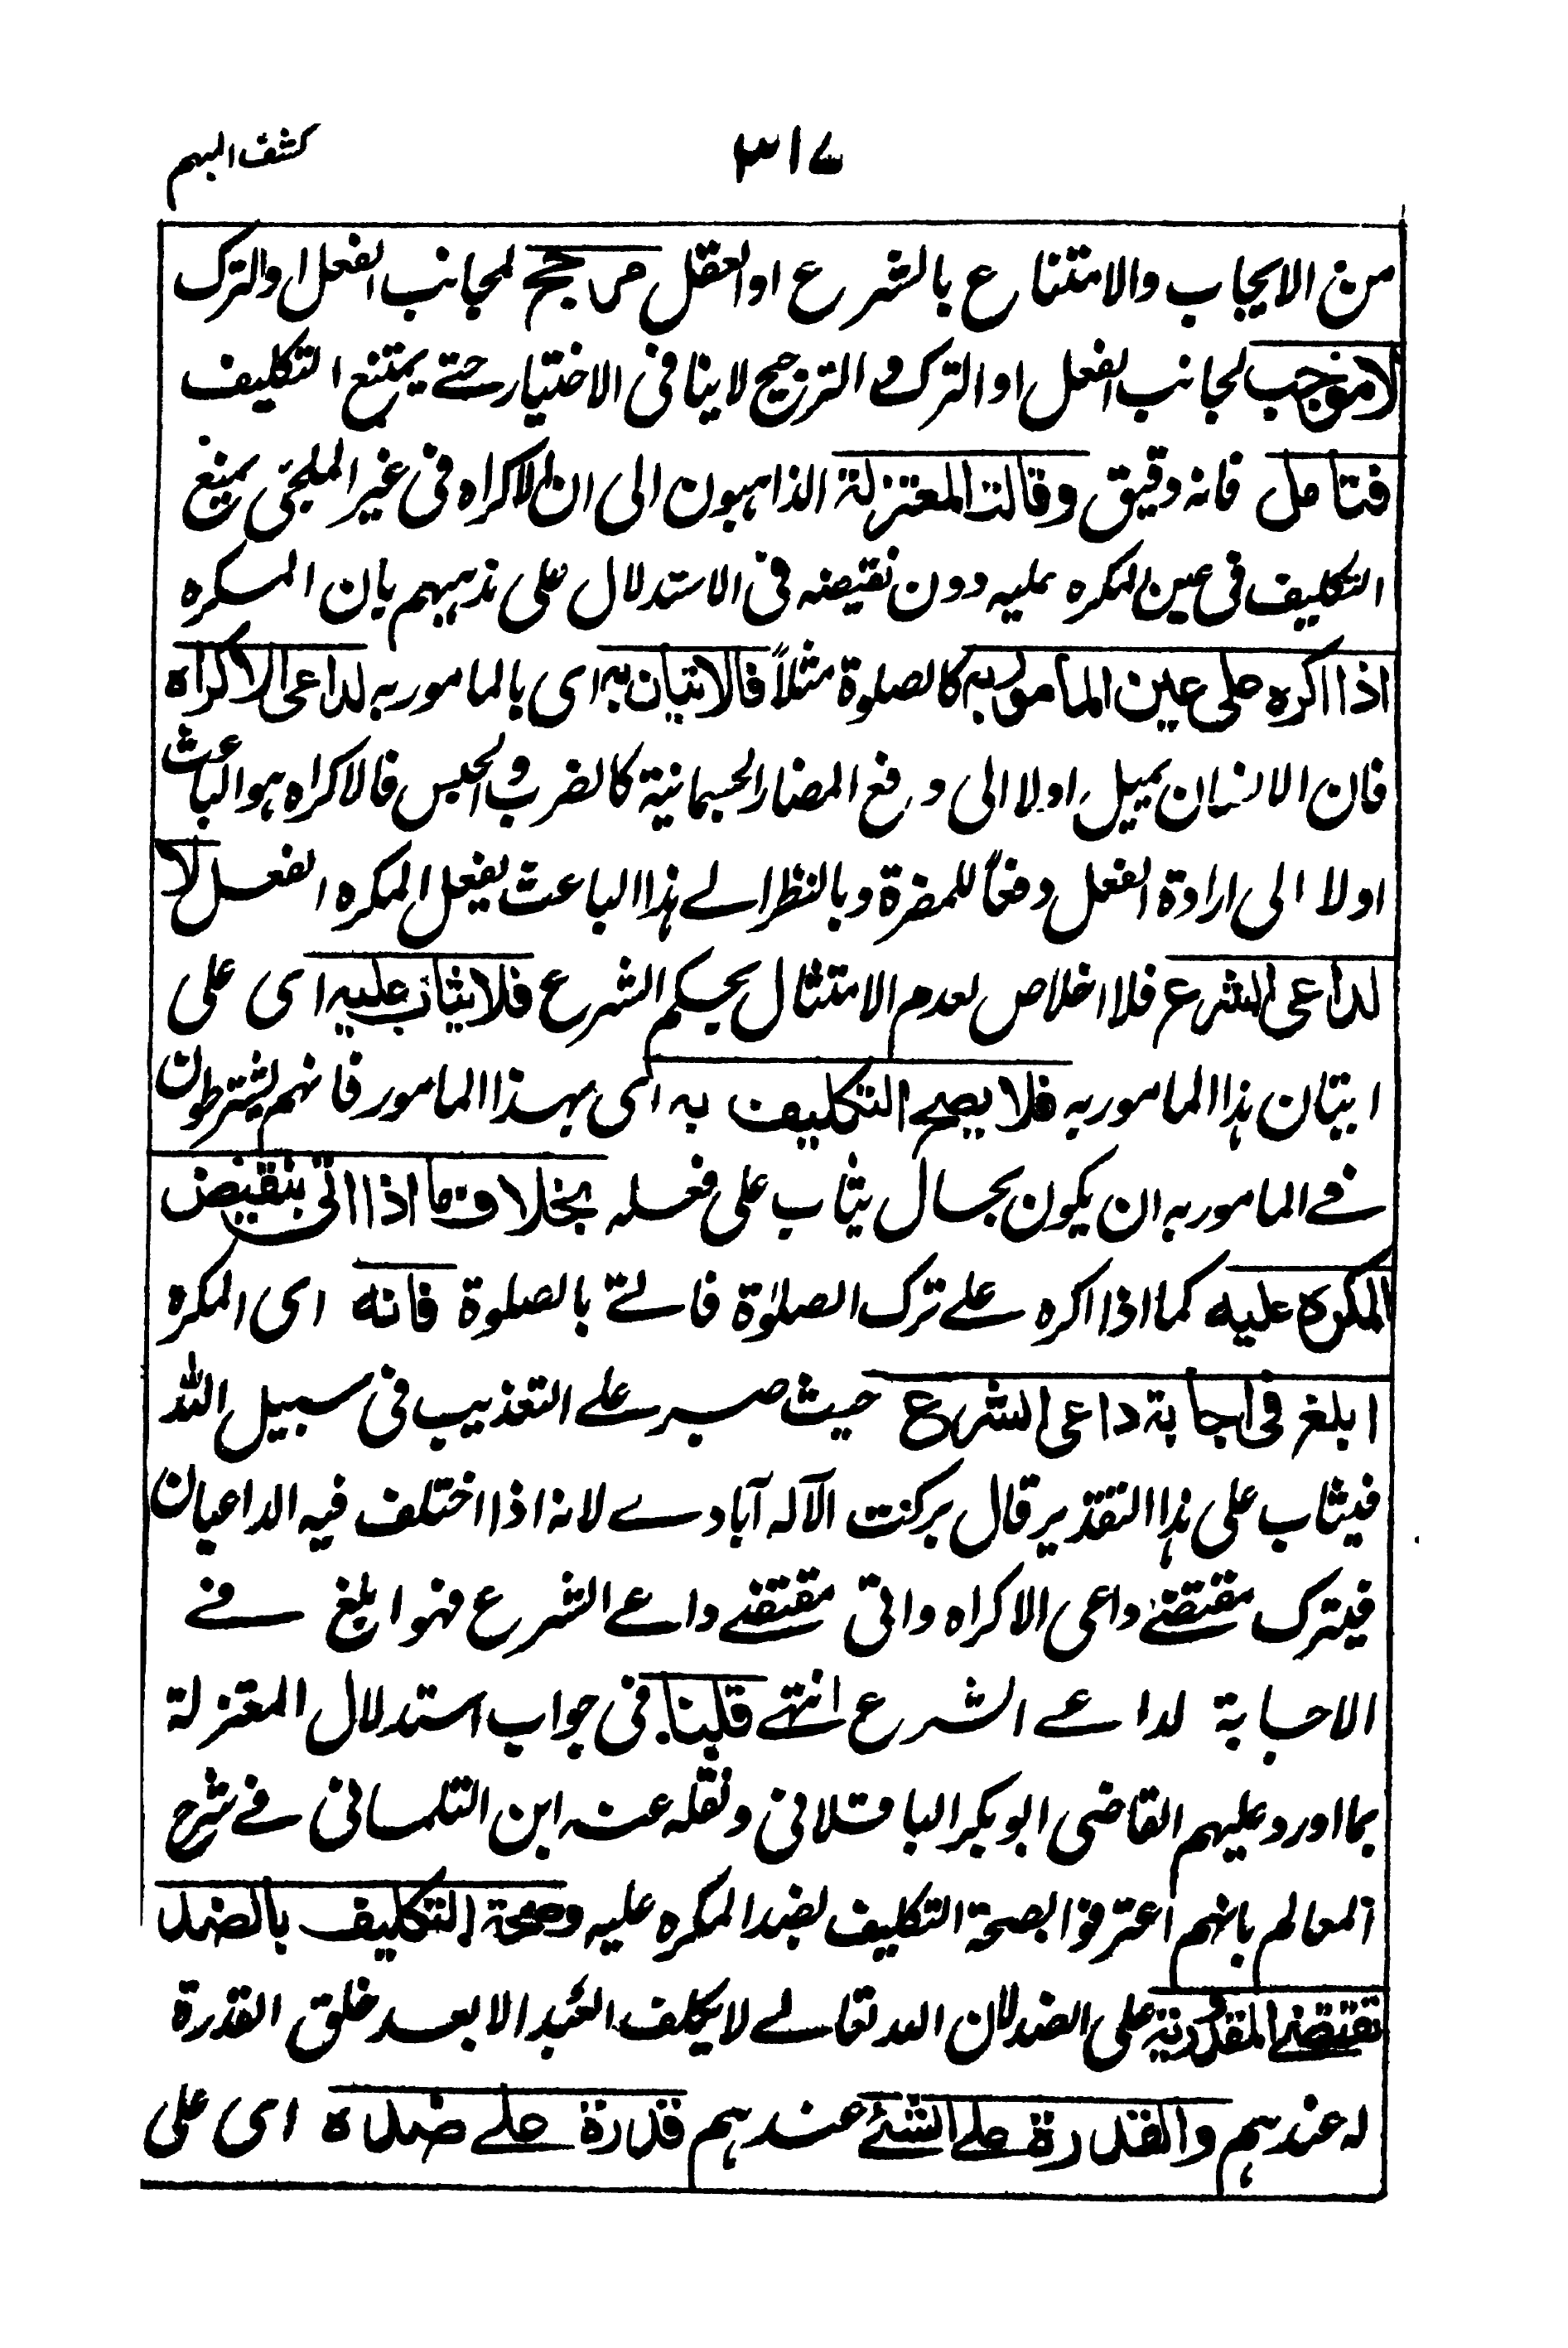 ۳۱۷
كشف المبهم
من الايجاب والامتناع بالشرع او العقل مرجح لجانب الفعل او الترك
لا موجب لجانب الفعل او الترك و الترجيح لا ينافى الاختيار حتے يمتنع التكليف
فتامل فانه دقيق وقالت المعتزلة الذاهبون الى ان الاكراه فى غير الملجئ يمنع
التكليف فى عين المكره عليه دون نقيضه فى الاستدلال على مذهبهم بان المكره
اذا اكره على عين المامور به كالصلوة مثلاً فالاتيان به اى بالمامور به لداعى الاكراه
فان الانسان يميل اولا الى دفع المضار الجسمانية كالضرب و الحبس فالاكراه هو الباعث
اولا الى ارادة الفعل دفعاً للمضرة وبالنظر الے هذا الباعث يفعل المكره الفعل لا
لداعى الشرع فلا اخلاص لعدم الامتثال بحكم الشرع فلا يثاب عليه اى على
اتيان هذا المامور به فلا يصح التكليف به اى بهذا المامور فانهم يشترطون
فے المامور به ان يكون بحال يثاب على فعله بخلاف ما اذا اتى بنقيض
المكره عليه كما اذا اكره علے ترك الصلوٰة فاتے بالصلوة فانه اى المكره
ابلغ فى اجابة داعى الشرع حيث صبر علے التعذيب فى سبيل الله
فيثاب على هذا التقدير قال بركت الآله آبادے لانه اذا اختلف فيه الداعيان
فيترك مقتضے داعى الاكراه واتى مقتضے داعے الشرع فهو ابلغ فے
الاجابة لداعے الشرع انتهے قلنا فى جواب استدلال المعتزلة
بما اورد عليهم القاضى ابو بكر الباقلانى ونقله عنه ابن التلمسانى فے شرح
المعالم بانهم اعترفوا بصحة التكليف بضد المكره عليه وصحة التكليف بالضد
تقتضے المقدورية على الضد لان الله تعالے لا يكلف العبد الا بعد خلق القدرة
له عندهم والقدرة علے الشئے عندهم قدرة علے ضده اى على